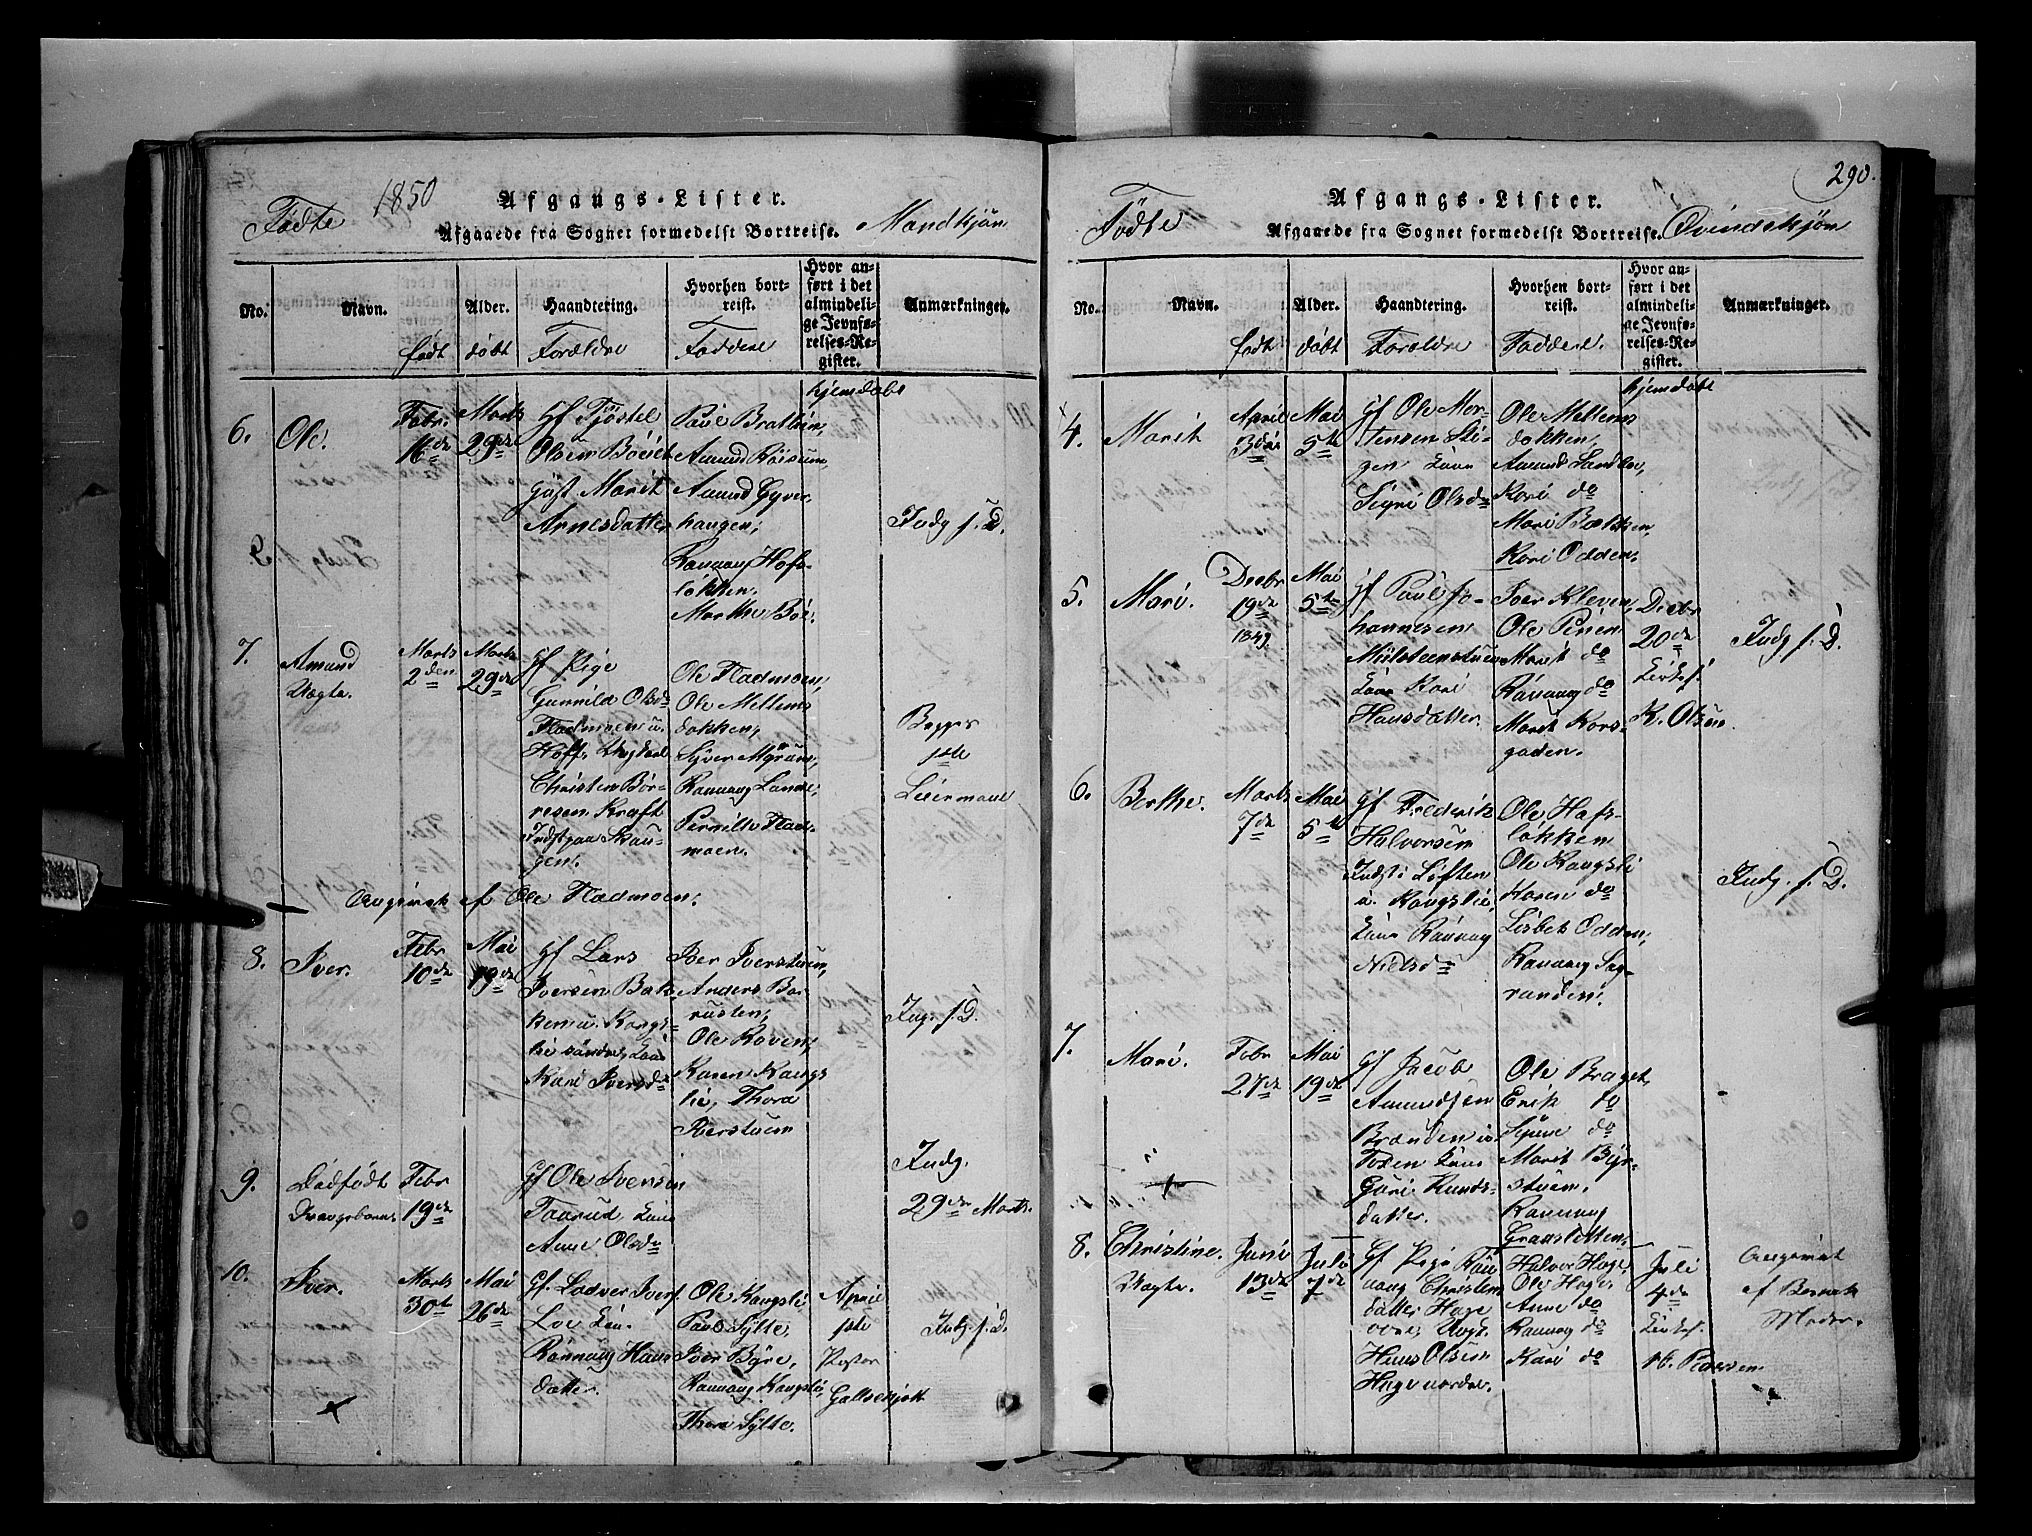 1850
Fødte
Afgangs-Lister.
Afgaaede fra Sognet formedelst Bortreise.
Mandkjøn
No.
Navn.
født
Alder.
døbt
Haandtering.
Forældre
Hvorhen bortreist.
Faddere
Hvor anført i det
almindelige Jevnførelses-Register.
hjemdøbt
Anmærkninger.
6.
Ole.
Febr.
16de
Marts
29de
Gf Tjøstel
Olsen
Gust Marit
Arnesdatter
Paul Brathen,
Amund Røisum,
Amund
haugen,
Rannaug Hofs-
løkken.
Marthe Bøe.
Indg f. D.
7.
Amund
Uægte.
Marts
2den
Marts
29de
Gf Pige
Gunnild Olsd
Fladmoen u.
Hoff,
Christen Bør-
resen Kraft
Indst paa Skau-
gen.
Ole Fladmoen,
Ole Mellems
dokken,
Syver Myrum,
Rannaug Lande,
Pernille Flad-
moen.
Begges
1ste
Leiermaal
Angivet af Ole Fladmoen.
8.
Iver.
Febr
10de
Mai
19de
Gf Lars
Iversen Bak-
ken u. Kongs-
lie søndre,
Kari Iversd
Iver Iverstuen,
Anders
rusten,
Ole Roven,
Karen Kongs
lie, Thora
Iverstuen
Ing. f. D.
9.
Dødfødt
Drængebarn
Febr
19de
Gf Ole Iversen
Taarud
Anne Olsd
Indg.
29de Marts.
10.
Iver.
Marts
30te
Mai
26de
Gf. Iversf
Loe
Rønnaug Hans
datter.
Ole Kongsli
Paul Sylte,
Iver Byre,
Rannaug Kongsli,
Thora Sylte.
April
1ste
Pastor
Galtschjøtt
Indg. f. D.
290.
Fødte
Afgangs-Lister.
Afgaaede fra Sognet formedelst Bortreise.
Qvindekjøn
No.
Navn.
født
Alder.
døbt
Haandtering.
Forældre
Hvorhen bortreist.
Faddere.
Hvor anført i det
almindelige Jevnførelses-Register.
hjemdøbt
Anmærkninger.
4.
Marit
April
3die
Mai
5te
Gf Ole Mor-
tensen Sti-
gen
Sigri Olsd
Ole Mellems
dokken,
Amund
Kari do
Mari Bakken,
Kari Odden.
5.
Mari.
Decbr
19de
1849.
Mai
5te
Gf Paul Jo-
hannesen
Milsteenstuen
Kari
Hansdatter
Iver Kleven,
Ole
Marit do
Rannaug do
Marit Kors-
gaden.
Decbr
20de
Kirkes.
K. Olsen
Indg f. D.
6.
Berthe.
Marts
7de
Mai
5te
Gf Frederik
Halvorsen
Indst i Løften
u. Kongslie,
Rannaug
Nielsd
Ole Hofs-
løkken
Ole Kongsli
Karen do
Lisbet Odden,
Rannaug Sag-
randen.
Indg. f. D.
7.
Mari.
Febr
27de
Mai
19de
Gf Jacob
Amundsen
Brænden u.
Guri Knuds-
datter.
Ole Braget,
Erik do
Synne do
Marit Byr-
stuen.
Rannaug
8.
Christine.
Uægte.
Juni
13de
Juli
7de
Gf Pige Ran
naug Christens
datter Hage
Hans Olsen
Hage nordre.
Halvor Hage
Ole Hage
Anne do
Rannaug do
Kari do
Juli
4de
Kirkes.
Pedersen
Angivet
af Barnets
Moder.